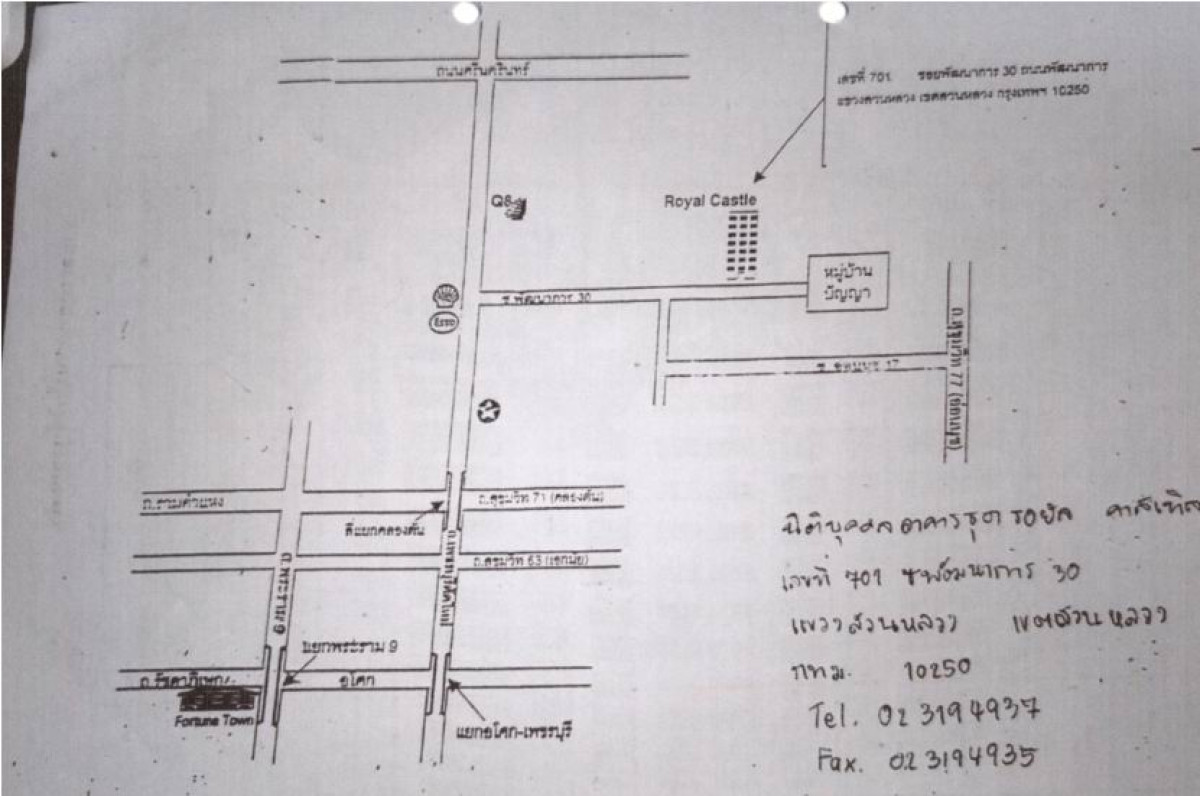 ถนนศรีนครินทร์
เลขที่ 701 ซอยพัฒนาการ 30 ถนนพัฒนาการ
แขวงสวนหลวง เขตสวนหลวง กรุงเทพฯ 10250
Q8
Royal Castle
หมู่บ้าน
ปัญญา
ซ.พัฒนาการ 30
Esso
ถ.สุขุมวิท 77 (อ่อนนุช)
17
ถ.รามคำแหง
ถ.สุขุมวิท 71 (คลองตัน)
สี่แยกคลองตัน
ถ.สุขุมวิท 63 (เอกมัย)
ถ.พระราม 9
ถ.เพชรบุรีตัดใหม่
แยกพระราม 9
ถ.รัชดาภิเษก
อโศก
Fortune Town
แยกอโศก-เพชรบุรี
นิติบุคคลอาคารชุด รอยัล คาสเทิล
เลขที่ 701 ซ.พัฒนาการ 30
แขวงสวนหลวง เขตสวนหลวง
กทม. 10250
Tel. 02 3194937
Fax. 02 3194935